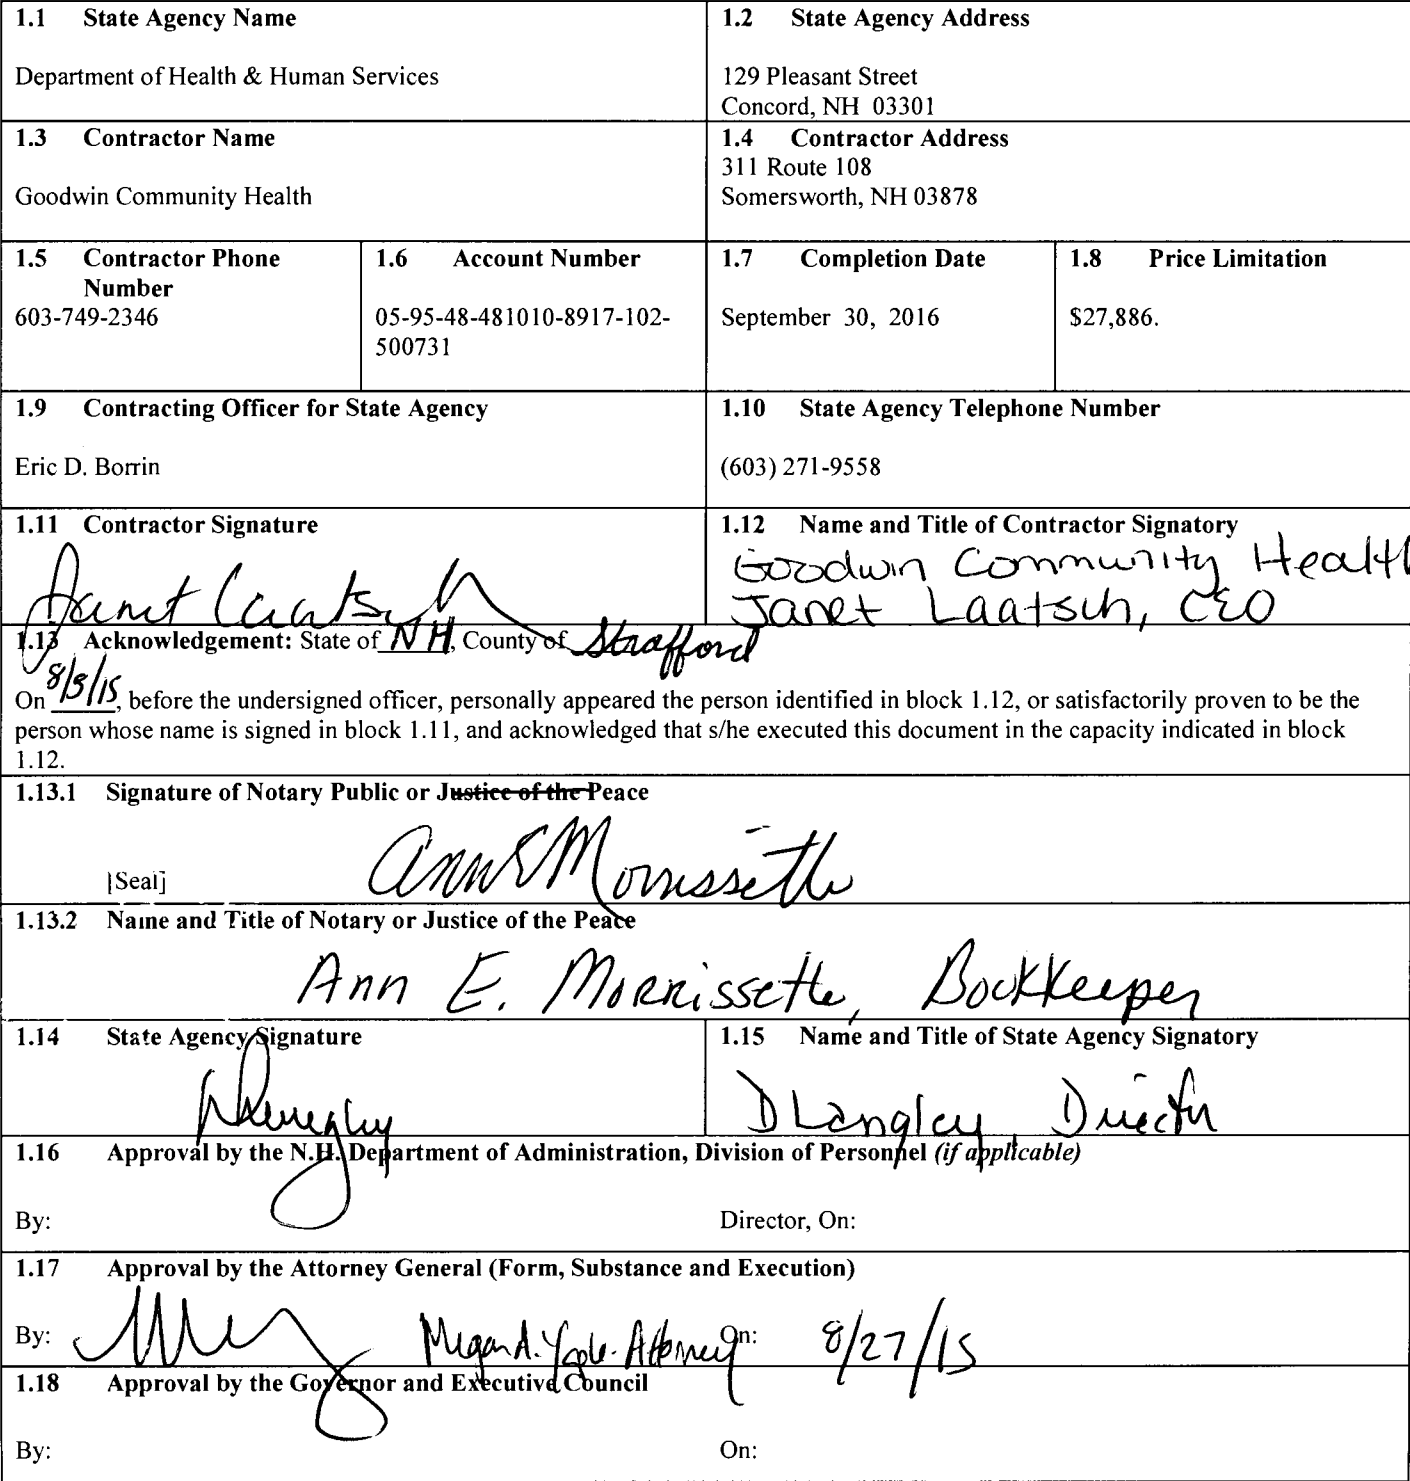 1.1 State Agency Name
Department of Health & Human Services
1.2 State Agency Address
129 Pleasant Street
Concord, NH 03301
1.3 Contractor Name
Goodwin Community Health
1.4 Contractor Address
311 Route 108
Somersworth, NH 03878
1.5 Contractor Phone
Number
603-749-2346
1.6 Account Number
05-95-48-481010-8917-102-
500731
1.7 Completion Date
September 30, 2016
1.8 Price Limitation
$27,886.
1.9 Contracting Officer for State Agency
Eric D. Borrin
1.10 State Agency Telephone Number
(603) 271-9558
1.11 Contractor Signature
Janet Laatsch
1.12 Name and Title of Contractor Signatory
Goodwin Community Health
Janet Laatsch, CEO
1.13 Acknowledgement: State of NH, County of Strafford
On 8/3/15, before the undersigned officer, personally appeared the person identified in block 1.12, or satisfactorily proven to be the
person whose name is signed in block 1.11, and acknowledged that s/he executed this document in the capacity indicated in block
1.12.
1.13.1 Signature of Notary Public or Justice of the Peace
Ann E Morrissette
[Seal]
1.13.2 Name and Title of Notary or Justice of the Peace
Ann E. Morrissette, Bookkeeper
1.14 State Agency Signature
1.15 Name and Title of State Agency Signatory
D Langley, Director
1.16 Approval by the N.H. Department of Administration, Division of Personnel (if applicable)
By:
Director, On:
1.17 Approval by the Attorney General (Form, Substance and Execution)
By: Megan A. Yaple - Attorney On: 8/27/15
1.18 Approval by the Governor and Executive Council
By:
On: